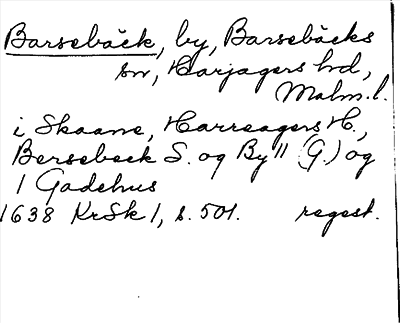 Barsebäck, by, Barsebäcks
sn, Harjagers hd,
Malm.l.
i Skaane, Harreagers H.,
Bersebeck S. og By 11 (G.) og
1 Gadehus
1638 KrSk 1, s. 501. regest.